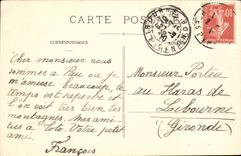 CARTE POSTALE
CORRESPONDANCE
Cher monsieur nous
sommes à Pau où je
m'amuse beaucoup le
temps est superbe et
l'on voit très bien les
montagnes. Mes ami-
tiés à Toto. Votre petit
ami.
François
Monsieur Porteu
au Haras de
Libourne
Gironde